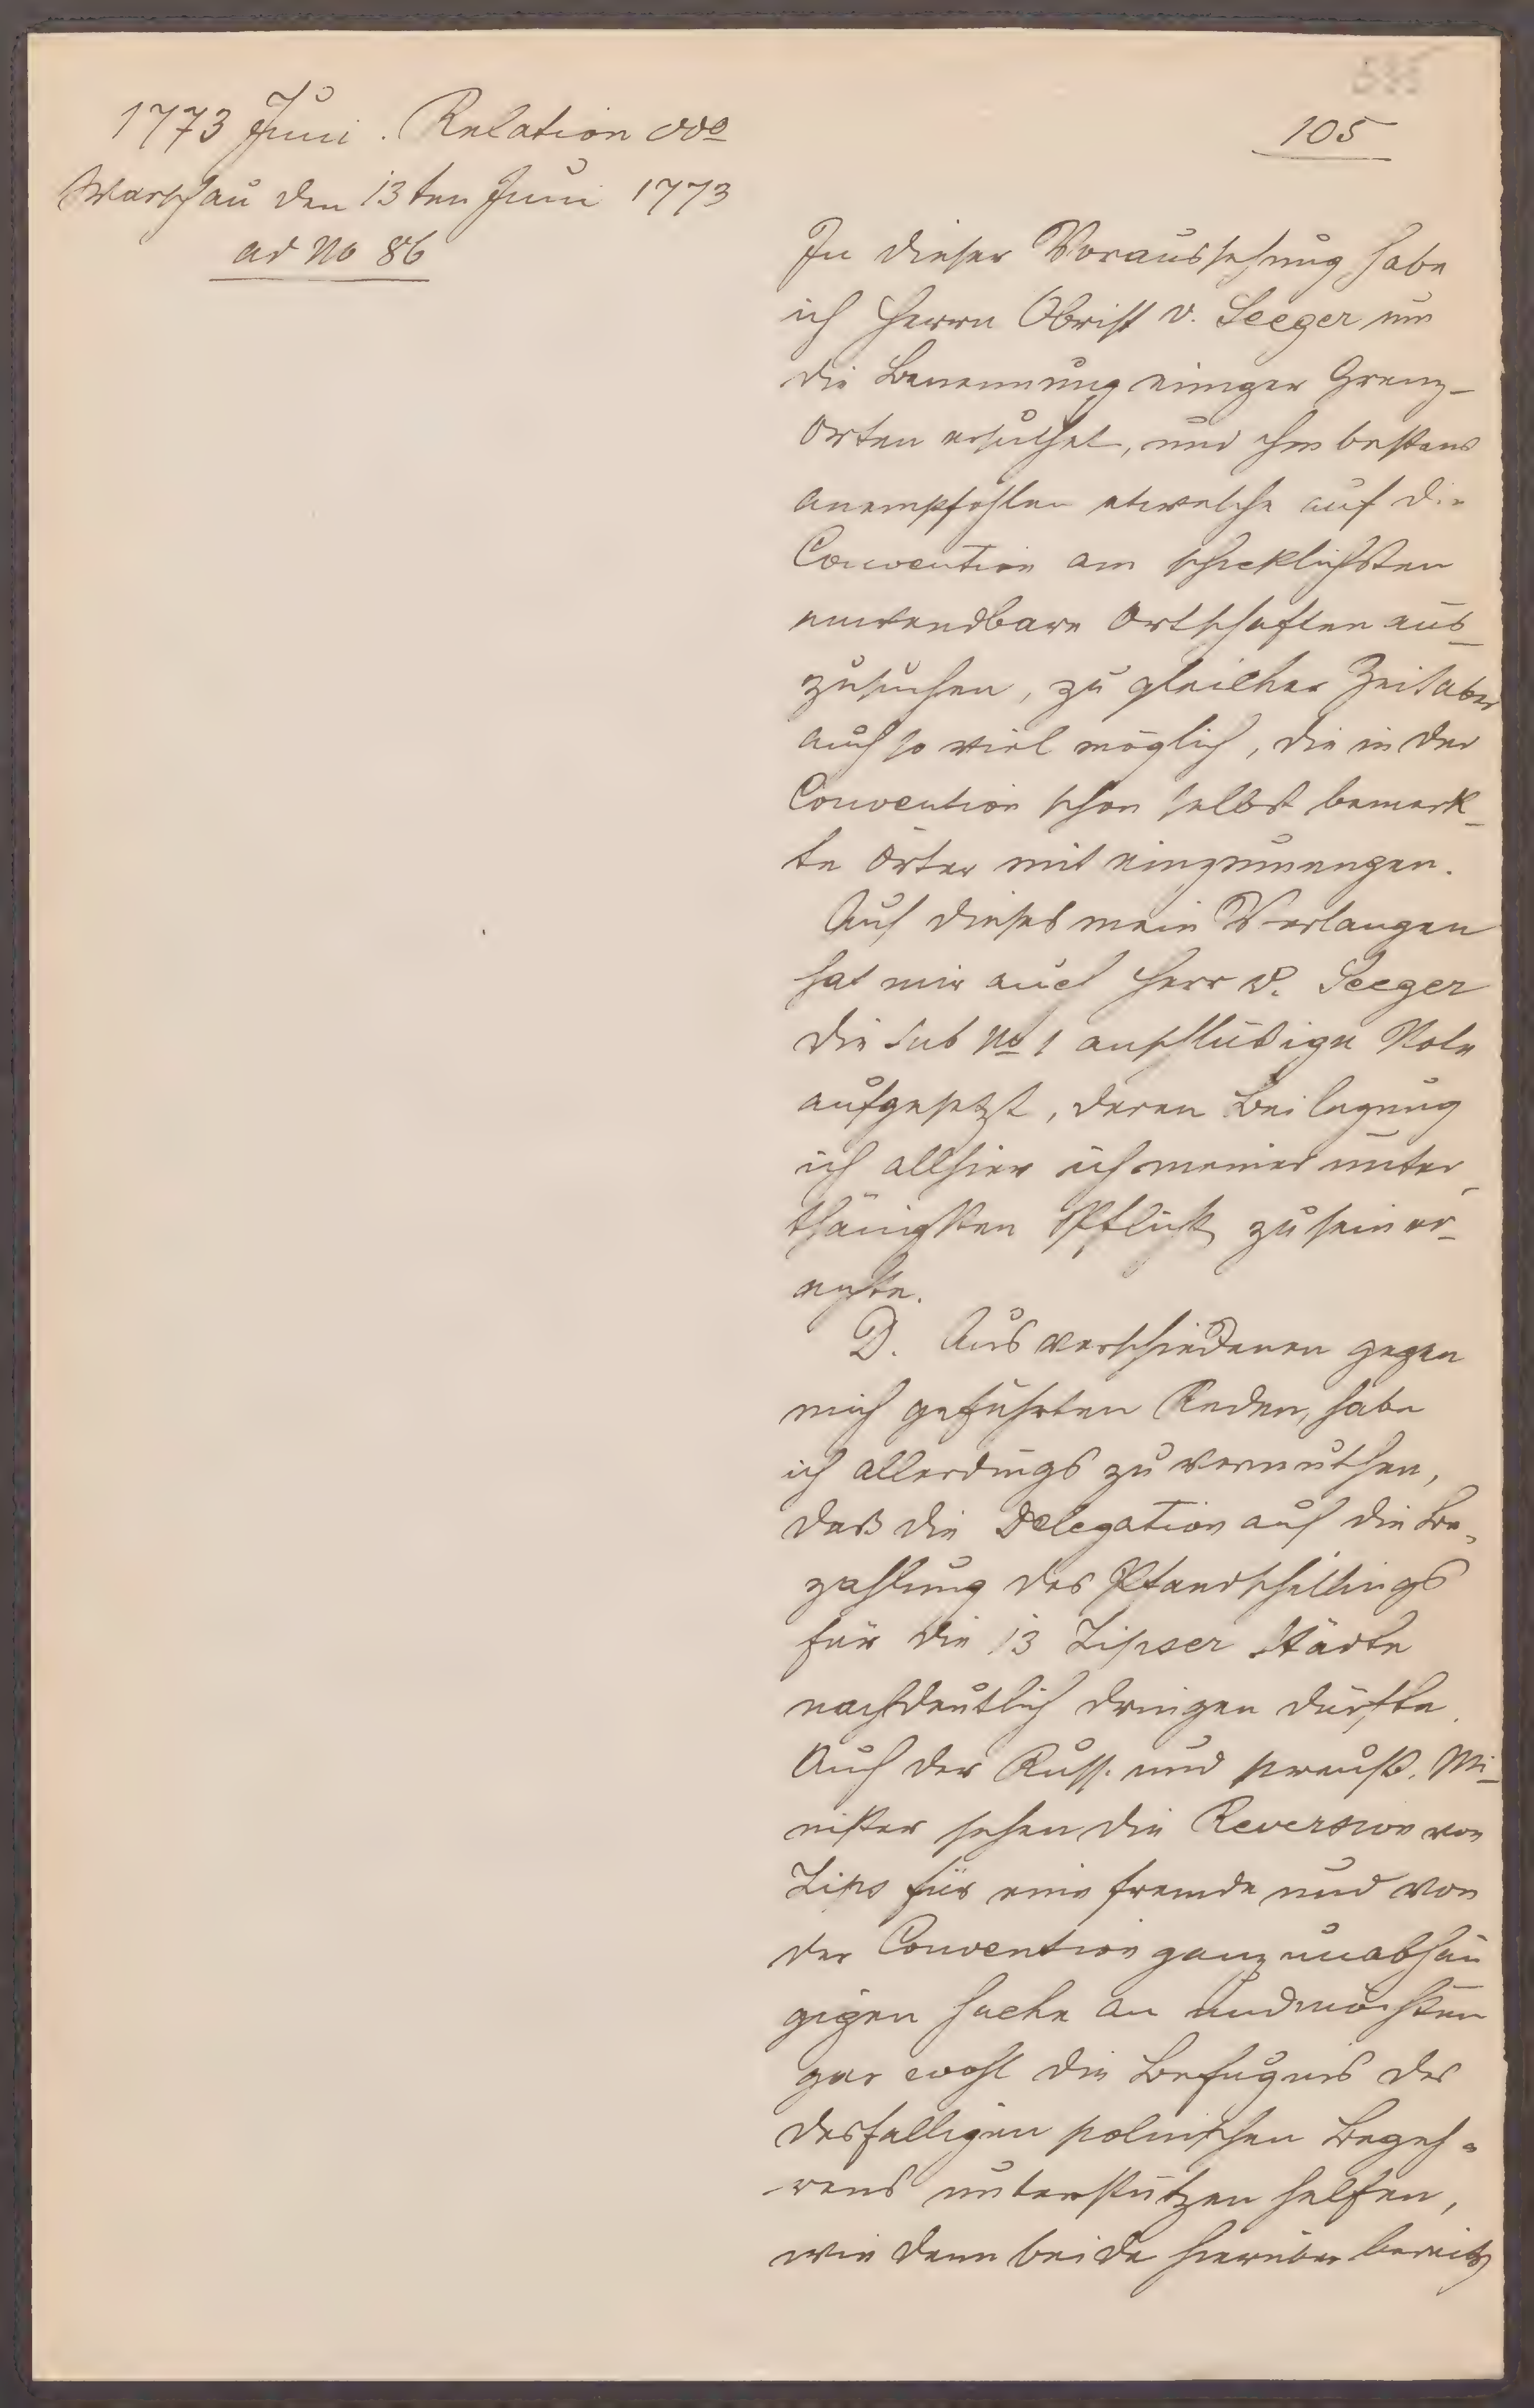 1773 Juni. Relation ddo
Warschau den 13ten Juni 1773
ad No 86
105
In dieser Voraussehung habe
ich Herrn Obrist v. Seeger um
die Benennung einiger Grenz-
Orten ersuchet, und ihm bestens
anempfohlen etwelche auf die
Convention am schicklichsten
anwendbare Ortschaften aus-
zusuchen, zu gleicher Zeit aber
auch so viel möglich, die in der
Convention schon selbst bemerk-
te Örter mit einzumengen.
Auf dieses mein Verlangen
hat mir auch Herr v. Seeger
die sub No 1 anschlüßige Note
aufgesetzt, deren Beilegung
ich allhier ich meiner unter-
thänigsten Pflicht zu sein er-
achte.
D. Aus verschiedenen gegen
mich geführten Reden, habe
ich allerdings zu vermuthen,
daß die Delegation auf die Be-
zahlung des Pfandschillings
für die 13 Zipser Städte
nachdeutlich dringen dürfte.
Auch der Russ. und preuß. Mi-
nister sehen die Reversion von
Zips für eine fremde und von
der Convention ganz unabhän
gigen Sache an und möchten
gar wohl die Befugnis des
desfalligen polnischen Begeh-
rens unterstützen helfen,
wie denn beide hierüber bereits